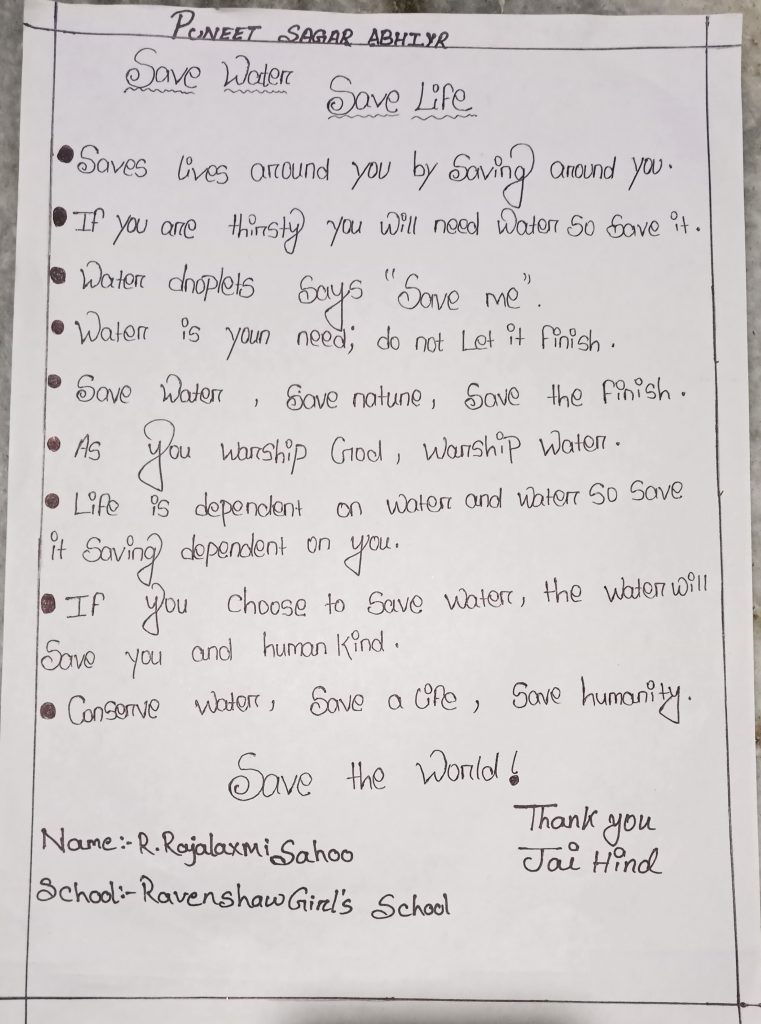 PUNEET SAGAR ABHIYR
Save Water
Save Life
• Saves lives around you by Saving around you.
• If you are thirsty you will need Water So Save it.
• Water droplets Says "Save me".
• Water is your need; do not Let it finish.
• Save Water, Save nature, Save the finish.
• As you warship God, warship Water.
• Life is dependent on water and water So Save
it Saving dependent on you.
• If you choose to Save water, the water will
Save you and human kind.
• Conserve water, Save a life, Save humanity.
Save the World!
Thank you
Name:- R. Rajalaxmi Sahoo
Jai Hind
School:- Ravenshaw Girl's School